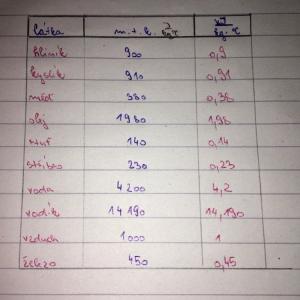 látka m.t.k. J/kg·°C kJ/kg·°C
hliník 900 0,9
kyslík 910 0,91
měď 380 0,38
olej 1980 1,98
rtuť 140 0,14
stříbro 230 0,23
voda 4200 4,2
vodík 14 190 14,190
vzduch 1000 1
železo 450 0,45